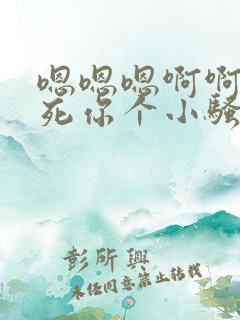 嗯嗯嗯啊啊
死你个小骚
彭所興
未任同意禁止转载